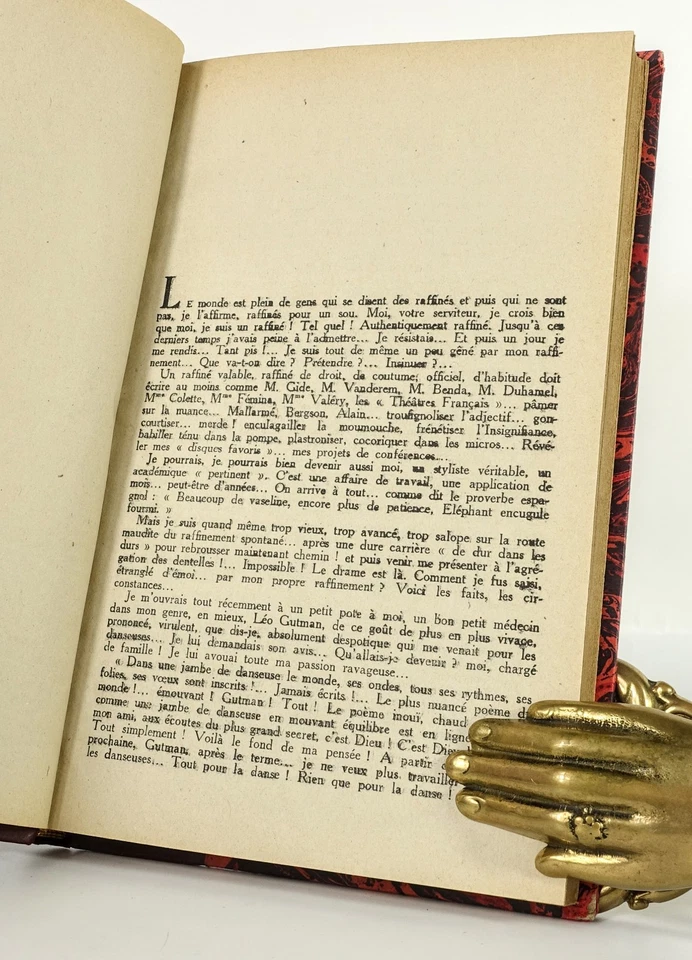 LE monde est plein de gens qui se disent des raffinés et puis qui ne sont
pas, je l'affirme, raffinés pour un sou. Moi, votre serviteur, je crois bien
que moi, je suis un raffiné ! Tel quel ! Authentiquement raffiné. Jusqu'à ces
derniers temps j'avais peine à l'admettre... Je résistais... Et puis un jour je
me rends... Tant pis !... Je suis tout de même un peu gêné par mon raffi-
nement... Que va-t-on dire ? Prétendre ?... Insinuer ?...
Un raffiné valable, raffiné de droit, de coutume, officiel, d'habitude doit
écrire au moins comme M. Gide, M. Vanderem, M. Benda, M. Duhamel,
Mme Colette, Mme Fémina, Mme Valéry, les « Théâtres Français »... pâmer
sur la nuance... Mallarmé, Bergson, Alain... troufignoliser l'adjectif... gon-
courtiser... merde ! enculagailler la moumouche, frénétiser l'Insignifiance,
babiller ténu dans la pompe, plastroniser, cocoriquer dans les micros... Révé-
ler mes « disques favoris »... mes projets de conférences...
Je pourrais, je pourrais bien devenir aussi moi, un styliste véritable, un
académique « pertinent ». C'est une affaire de travail, une application de
mois... peut-être d'années... On arrive à tout... comme dit le proverbe espa-
gnol : « Beaucoup de vaseline, encore plus de patience, Eléphant encugule
fourmi. »
Mais je suis quand même trop vieux, trop avancé, trop salope sur la route
maudite du raffinement spontané... après une dure carrière « de dur dans les
durs » pour rebrousser maintenant chemin ! et puis venir me présenter à l'agré-
gation des dentelles !... Impossible ! Le drame est là. Comment je fus saisi,
étranglé d'émoi... par mon propre raffinement ? Voici les faits, les cir-
constances...
Je m'ouvrais tout récemment à un petit pote à moi, un bon petit médecin
dans mon genre, en mieux, Léo Gutman, de ce goût de plus en plus vivace,
prononcé, virulent, que dis-je, absolument despotique qui me venait pour les
danseuses... Je lui demandais son avis... Qu'allais-je devenir ? moi, chargé
de famille ! Je lui avouai toute ma passion ravageuse...
« Dans une jambe de danseuse le monde, ses ondes, tous ses rythmes, ses
folies, ses vœux sont inscrits !... Jamais écrits !... Le plus nuancé poème d
monde !... émouvant ! Gutman ! Tout ! Le poème inouï, chaud
comme une jambe de danseuse en mouvant équilibre est en ligne
mon ami, aux écoutes du plus grand secret, c'est Dieu ! C'est Dieu
Tout simplement ! Voilà le fond de ma pensée ! A partir
prochaine, Gutman, après le terme... je ne veux plus travailler
les danseuses... Tout pour la danse ! Rien que pour la danse !